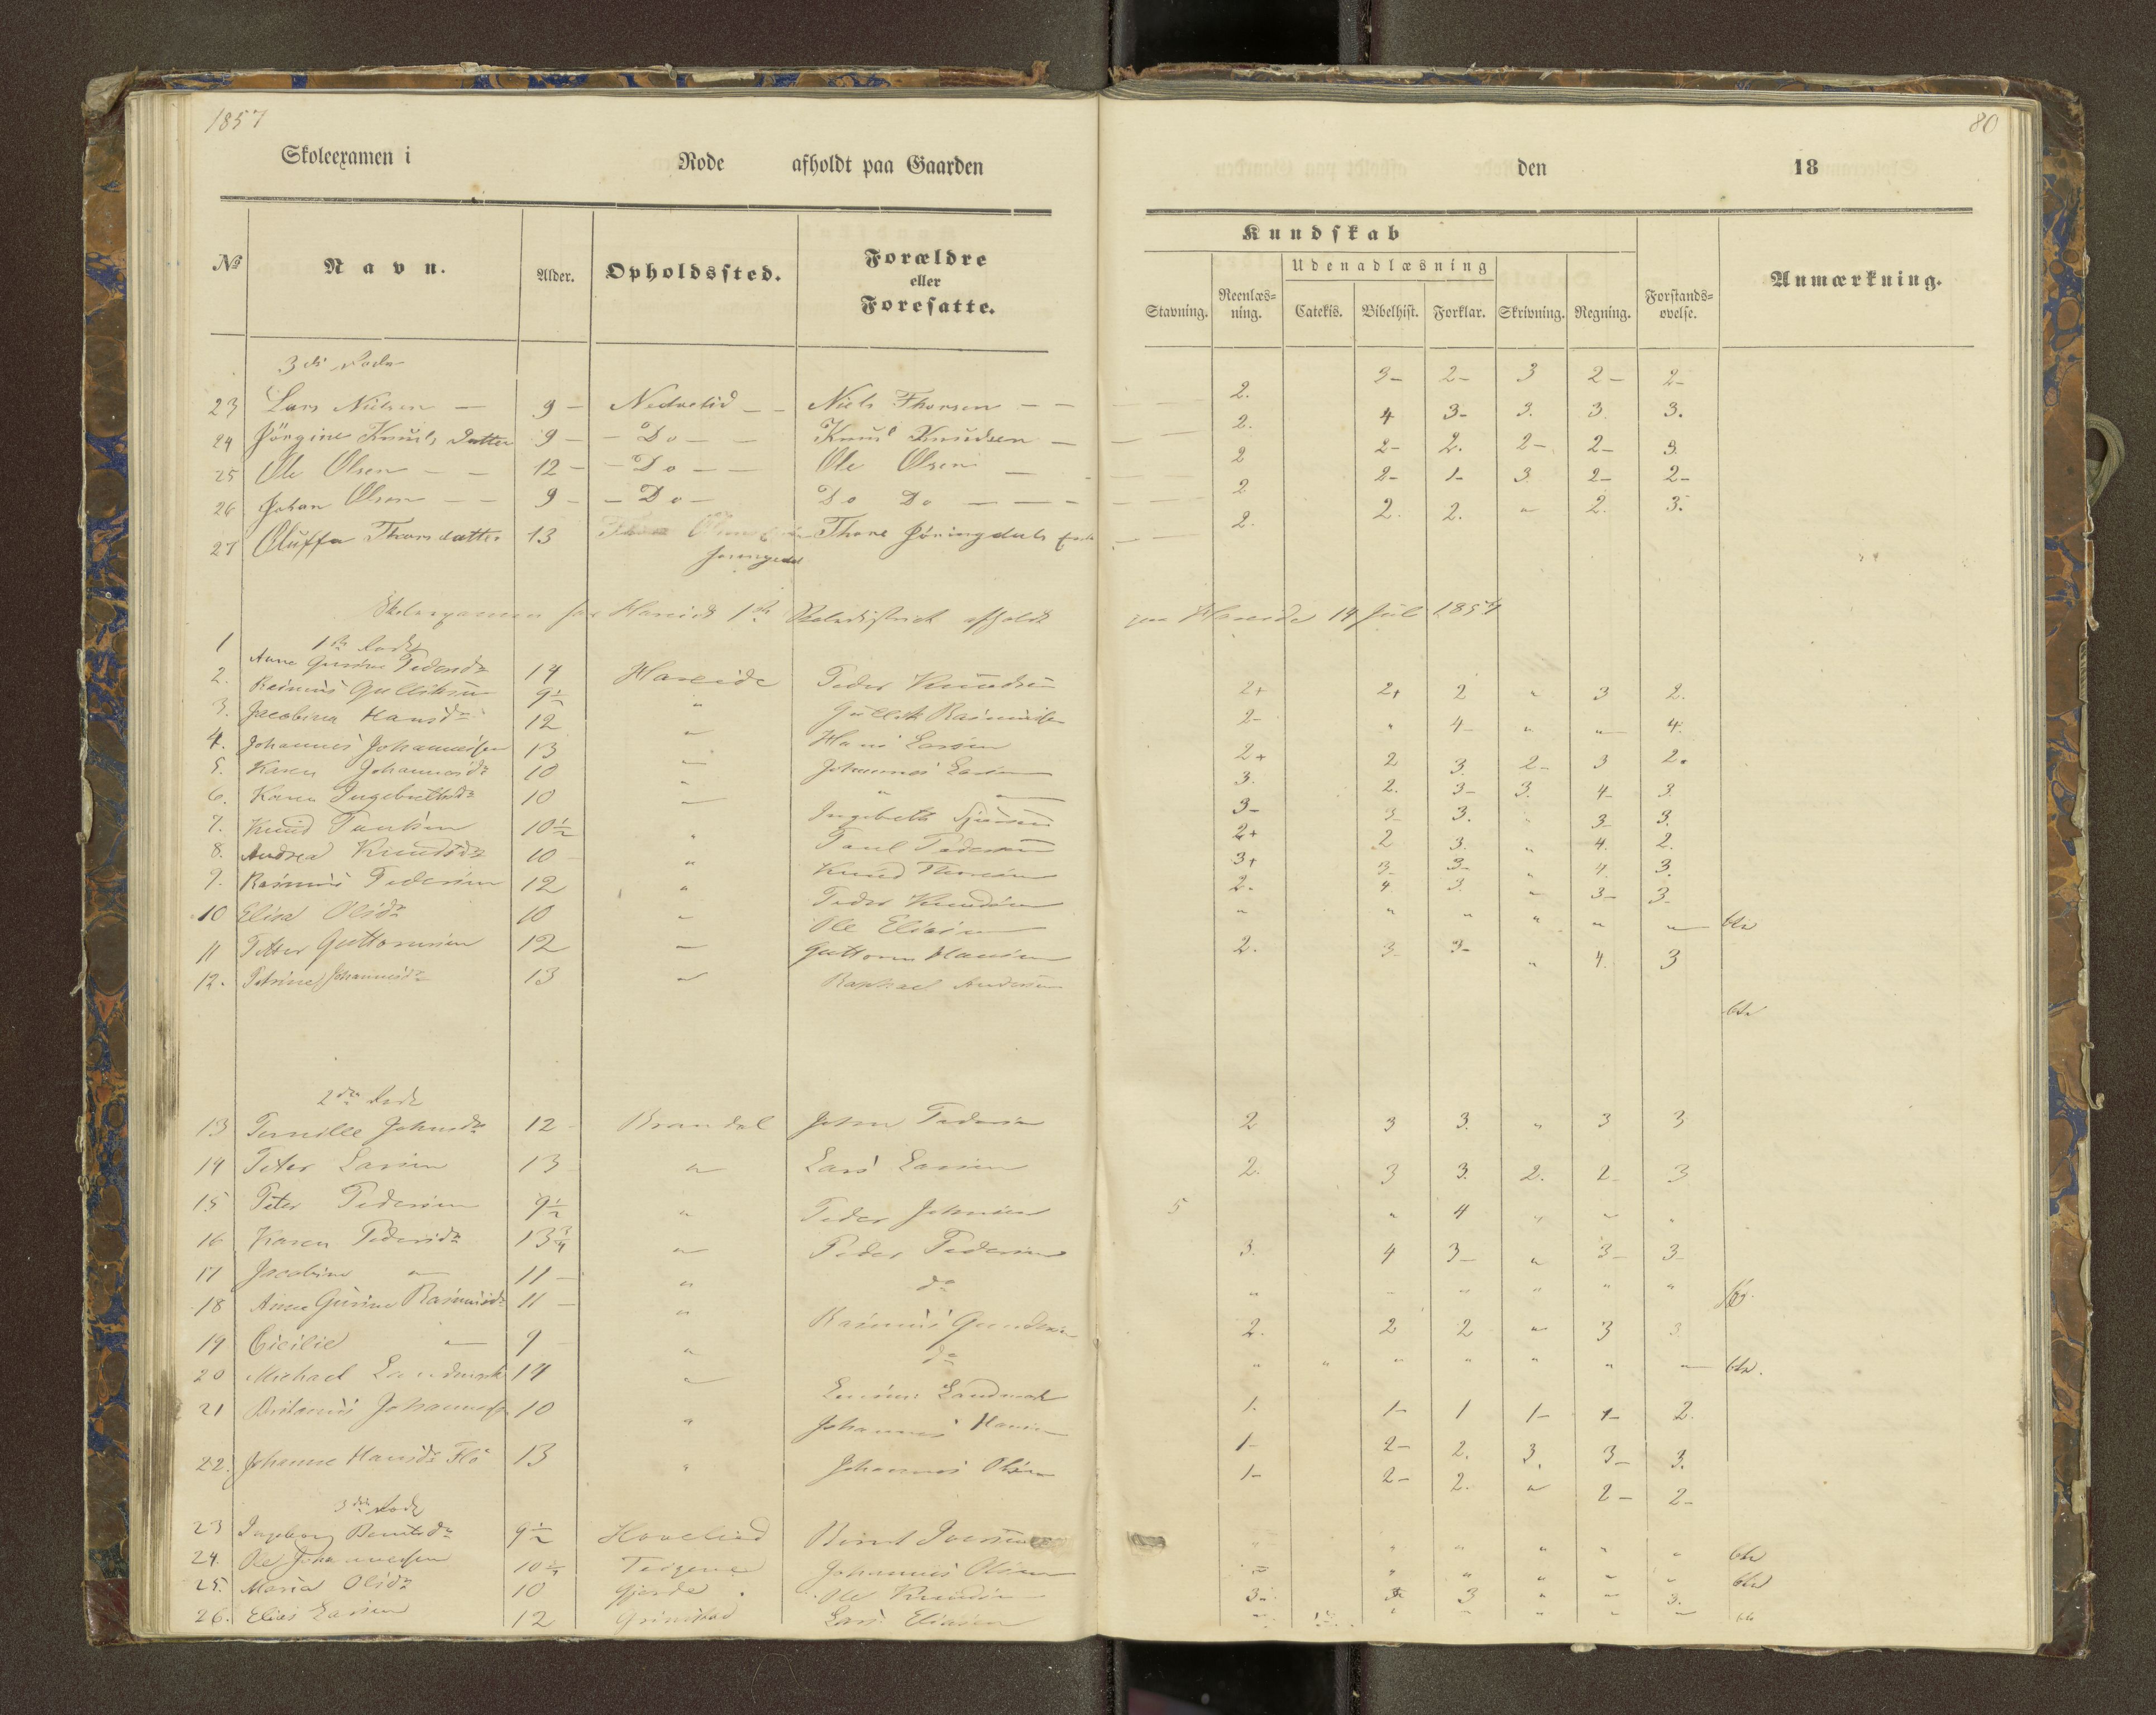 1857
80
Skoleexamen i Rode afholdt paa Gaarden den 18
Kundskab
Udenadlæsning
No Navn. Alder. Opholdssted. Forældre eller Foresatte. Stavning. Reenlæs=ning. Catekis. Bibelhist. Forklar. Skrivning. Regning. Forstands=øvelse. Anmærkning.
3die Rode
23 Lars Nielsen — 9 — Niels Thorsen — — 2. 3- 2- 3 2- 2-
24 Jörgine Knuds Datter 9 — — Do — — Knud Knudsen — 2. 4 3- 3. 3. 3.
25 Ole Olsen — — 12 — — Do — — Ole Olsen — 2 2- 2. 2- 2- 3.
26 Johan Olsen — — 9 — — Do — Do Do — — — 2 2- 1- 3 2- 2-
27 Oluffa Thorsdatter 13 Thore 2. 2. 2. " 2. 3.
Skoleexamen for Hareids 1ste Skoledistrict afholdt paa Hareide 14 Juli 1857
1ste Rode
1 Anne Gurine Pedersdr 14 Hareide Peder Knudsen 2+ 2+ 2 " 3 2.
2. Rasmus Gulliksen 9½ " Gullik Rasmussen 2- " 4- " " 4.
3. Jacobina Hansdr 12 " Hans Larsen 2+ 2 3. 2- 3 2.
4. Johannes Johannessen 13 " Johannes Larsen 3. 2. 3- 3. 4- 3.
5. Karen Johannesdr 10 " " " 3- 3- 3. " 3- 3.
6. Karen Ingebretsdr 10 " Ingebreth 2+ 2 3. " 4. 2.
7. Knud Paulsen 10½ " Paul Pedersen 3+ 3- 3- " 4. 3.
8. Andrea Knudsdr 10 " Knud Thoresen 2- 4 3. " 3- 3-
9. Rasmus Pedersen 12 " Peder Knudsen " " " " " "
10 Elisa Olsdr 10 " Ole Eliasen 2. 3- 3- " 4. 3
11 Petter Guttormsen 12 " Guttorm Hansen
12. Petrine Johannesdr 13 " Raphael Andersen
2den Rode
13 Pernille Johnsdr 12 Brandal John Pedersen 2 3 3. " 3 3
14 Peter Larsen 13 " Lars Larsen 2. 3 3. 2. 2 3
15 Peter Pedersen 9½ " Peder Johnsen 5 " 4 " " "
16 Karen Pedersdr 13¾ " Peder Pedersen 3. 4 3- " 3- 3-
17 Jacobine " 11 — " do " " " " " "
18 Anne Gurine Rasmusdr 11 — " Rasmus 2. 2 2 " 3 3
19 Cicilie " 9 " do " " " " " " "
20 Michael Landmark 14 " Landmark 1. 1- 1 1- 1- 2.
21 Johannes 10 " Johannes Hansen 1- 2- 2. 3. 3- 3.
22. Johanne Hansdr Flö 13 " Johannes Olsen 1- 2- 2. " 2- 2-
3die Rode
23 Ingeborg Berntsdr 9½ Hovelid Bernt Iversen " " " " " "
24. Ole Johannessen Teigene Johannes Olsen " " " " " "
25. Maria Olsdr 10 Gjerde Ole Knudsen 3- 3 " " 3.
26. Elias Larsen 12 Grimstad Lars Eliasen " " " " " "